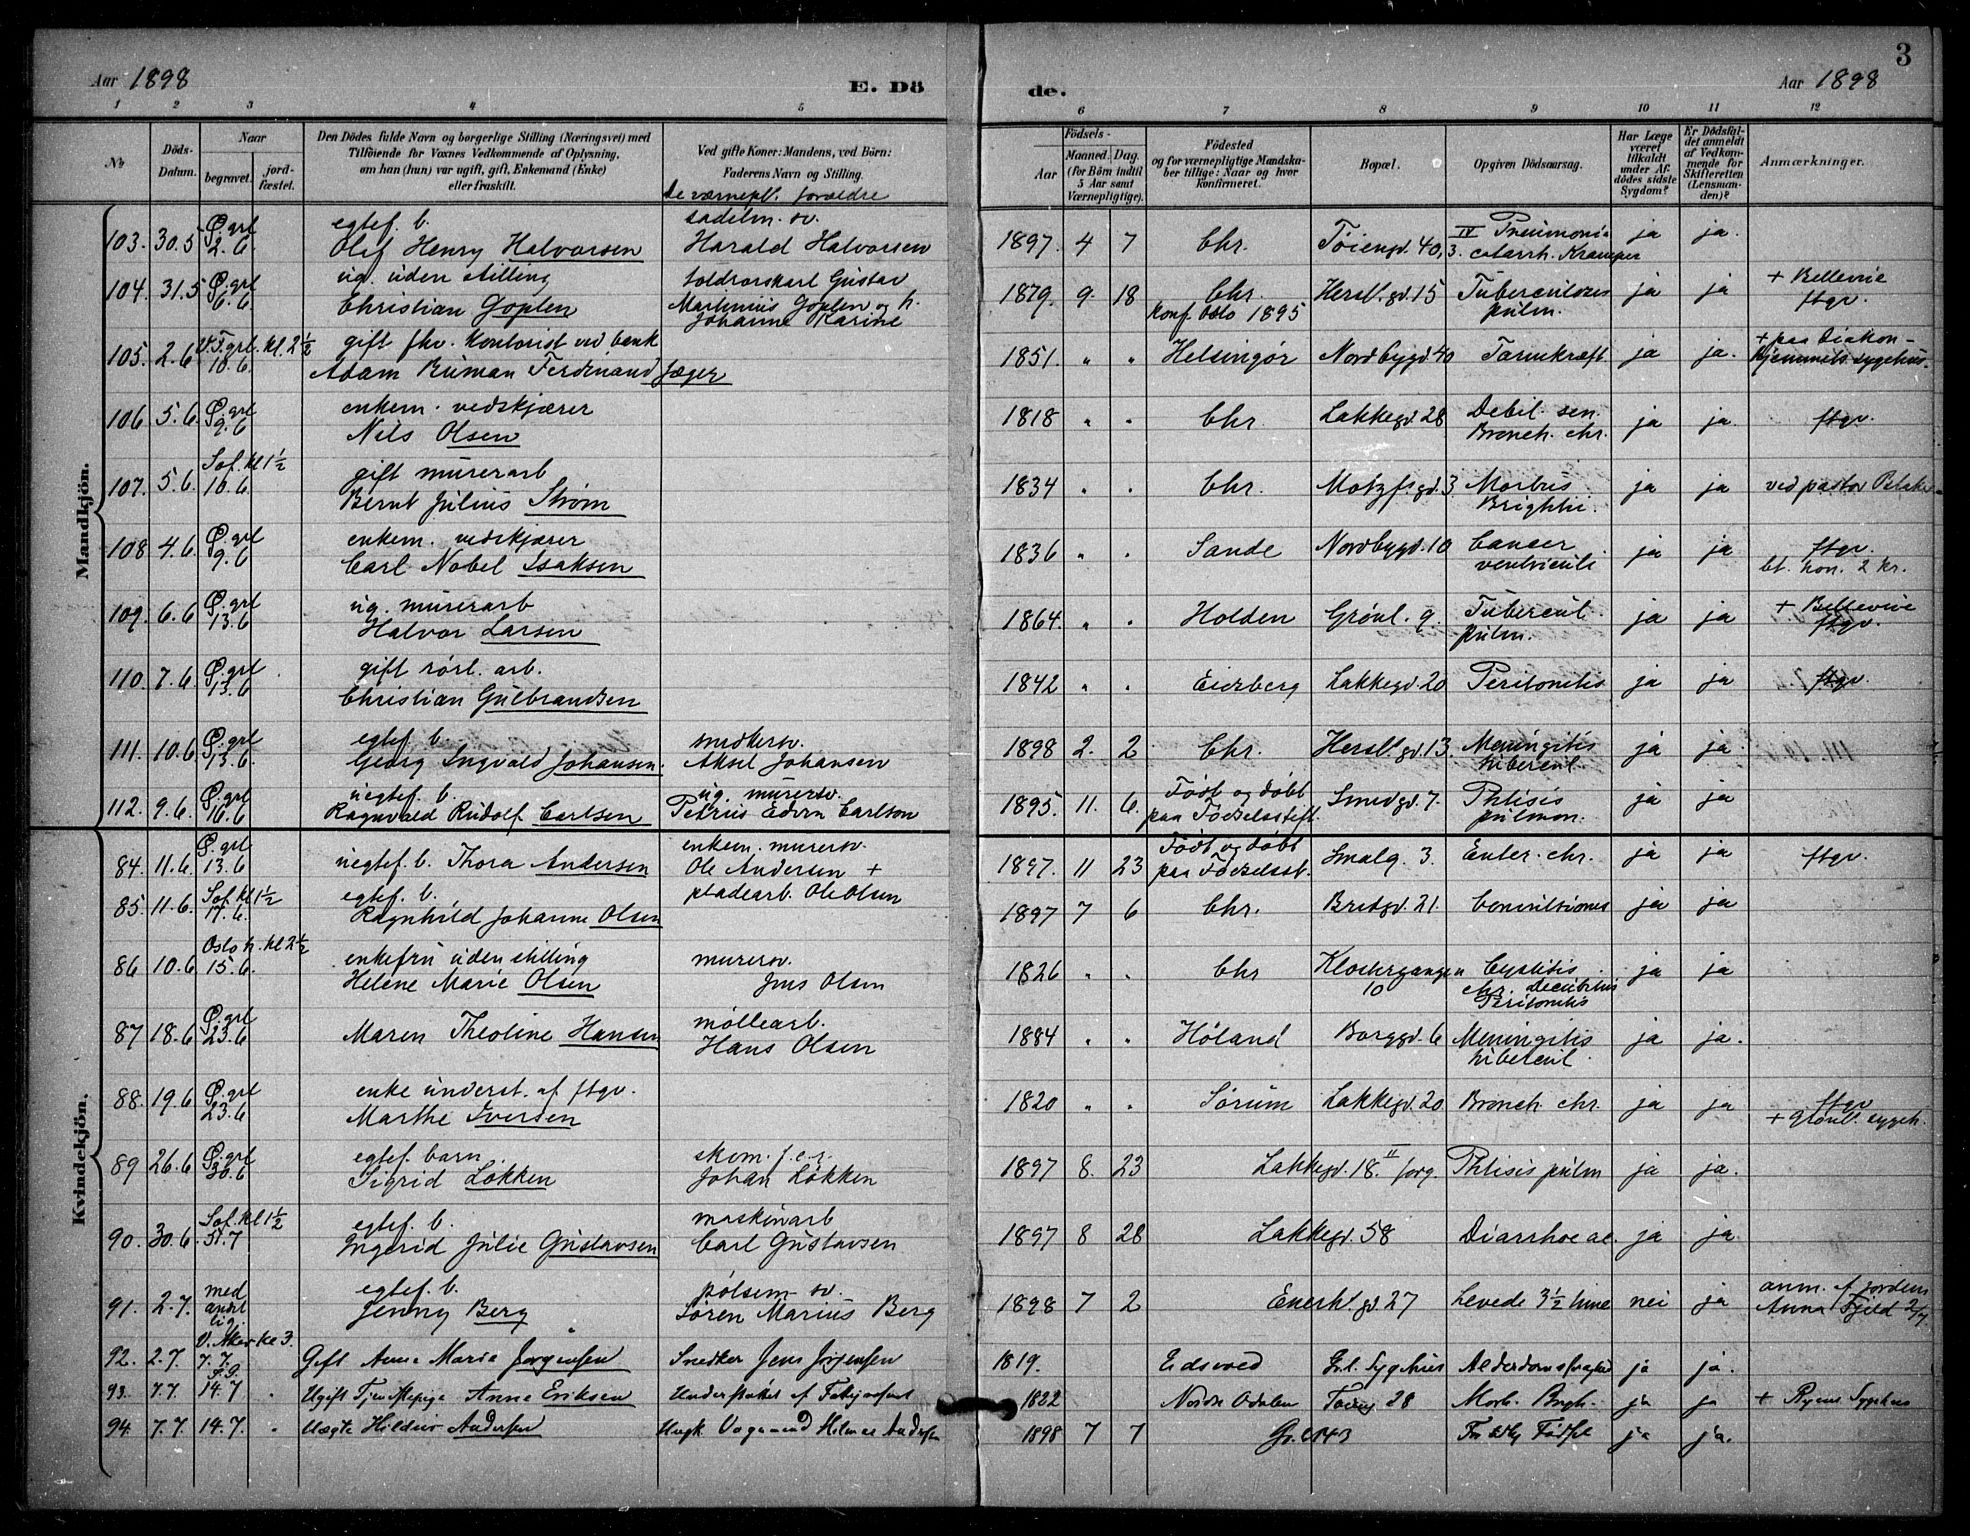 3
Aar 1898
E. Dö
de.
Aar 1898
1 2 3 4 5 6 7 8 9 10 11 12
No
Döds-Datum.
Naar
begravet.
jord-fæstet.
Den Dödes fulde Navn og borgerlige Stilling (Næringsvei) med
Tilföiende for Voxnes Vedkommende af Oplysning,
om han (hun) var ugift, gift, Enkemand (Enke)
eller fraskilt.
Ved gifte Koner: Mandens, ved Börn:
Faderens Navn og Stilling.
de værnepl. forældre
Födsels-
Aar
Maaned. Dag.
(for Börn indtil
5 Aar samt
Værnepligtige).
Födested
og for værnepligtige Mandska-
ber tillige: Naar og hvor
konfirmeret.
Bopæl.
Opgiven Dödsaarsag.
Har Læge
været
tilkaldt
under Af-
dödes sidste
Sygdom?
Er Dödsfal-
det anmeldt
af Vedkom-
mende for
Skifteretten
(Lensman-
den)?
Anmærkninger.
Mandkjön.
103. 30.5 Ø.grl 2.6 egtef. b. Olaf Henry Halvorsen sadelm. sv. Harald Halvorsen 1897. 4 7 Chr. Tøiengd. 40,3. IV Pneumonia catarrh. Kramper ja ja.
104. 31.5 Ø.grl 6.6 ug. uden stilling Christian Goplen Toldrorskarl Gustav Martinius Goplen og h. Johanne Karine 1879. 9. 18 Chr. Konf. Oslo 1895 Hersl. gd. 15 Tuberculoses pulm. ja ja + Bellevue ftgv.
105. 2.6 V.F.grl. kl. 2½ 10.6 gift fhv. Kontorist ved bank Adam Buman Ferdinand Jæger 1851. " " Helsingør Nordbygd. 40 Tarmkræft ja ja. + paa Diakon-hjemmets sygehus.
106 5.6. Ø.grl 9.6 enkem. vedskjærer Nils Olsen 1818 " " Chr. Lakkegd. 28 Debil. sen. Bronch. chr. ja ja. ftgv.
107. 5.6. Sof. kl 1½ 10.6 gift murerarb Bernt Julius Strøm 1834 " " Chr. Motzfs.gd. 3 Morbus Brightii. ja ja ved pastor
108 4.6. Ø.grl 9.6 enkem. vedskjærer Carl Nobel Isaksen 1836 " " Sande Nordbygd. 10 Cancer ventriculi ja ja ftgv. bt. hon. 2 kr.
109. 6.6 Ø.grl 13.6 ug. murerarb Halvor Larsen 1864. " " Holden Grønl. 9. Tubercul. pulm. ja ja + Bellevue ftgv.
110. 7.6. Ø.grl 13.6 gift rørl. arb. Christian Gulbrandsen 1842 " " Eidsberg Lakkegd. 20 Peritonitis ja ja ftgv.
111. 10.6 Ø.grl 13.6 egtef. b. Georg Ingvald Johansen. smedkersv. Aksel Johansen 1898 2. 2 Chr. Hersl. gd. 13. Meningitis tubercul. ja ja.
112. 9.6. Ø.grl 16.6 uegtef. b. Ragnvald Rudolf Carlsen ug. murersv. Petrus Edvin Carlson 1895. 11. 6. Født og døbt paa Fødselsstift. Smedgd. 7. Phtisis pulmon. ja ja
Kvindekjön.
84. 11.6. Ø.grl 13.6 uegtef. b. Thora Andersen enkem. murersv. Ole Andersen + 1897. 11 23 Født og døbt paa Fødselsst. Smalg. 3. Enter. chr. ja ja ftgv.
85. 11.6. Sof. kl 1½ 17.6. egtef. b. Ragnhild Johanne Olsen pladearb. Ole Olsen 1897 7 6 Chr. Bredgd. 21. Convulsiones ja ja
86 10.6 Oslo h. kl 2½ 15.6. enkefru uden stilling Helene Marie Olsen murersv. Jens Olsen 1826 " " Chr Klostergangen 10 Cystitis chr. Decubitus Peritonitis ja ja
87 18.6 Ø.grl 23.6 Maren Theoline Hansen møllearb. Hans Olsen 1884 " " Høland Borggd. 6 Meningitis tubercul. ja ja.
88. 19.6 Ø.grl 23.6 enke underst. af ftgv. Marthe Iversen 1820 " " Sørum Lakkegd. 20. Bronch. chr. ja ja ftgv + Grønl. sygeh.
89 26.6 Ø.grl 30.6 egtef. barn Sigrid Løkken skom. Johan Løkken 1897 8. 23 Lakkegd. 18. II forg. Phtisis pulm ja ja.
90. 30.6. Sof. kl 1½ 5.7 egtef. b. Ingerid Julie Gustavsen maskinarb Carl Gustavsen 1897 8 28 Lakkegd. 58 Diarrhoe ac. ja ja.
91. 2.7. med andet lig. egtef. b. Jenny Berg pølsem. sv. Søren Marius Berg 1898 7 2 Enerh. gd. 27 Levede 3½ time nei ja anm. af jordem Anna Fjeld 2/7.
92. 2.7. V. Aker kl 3. 7.7. Gift Anne Marie Jørgensen Snedker Jens Jørgensen 1819. Eidsvold Grl. Sygehus Alderdomssvaghed ja ja.
93. 7.7. 14.7 Ugift Tjenestepige Anne Eriksen Understøttet af Fattigvæsenet 1822 Nordre Odalen Tøieng 28 Morb. Brigh. ja ja + Ryens Sygehus
94. 7.7. 14.7. Uægte Hildur Andersen Ungk. Vognmand Hilmar Andersen 1898 7 7 Grl. 43 For tidlig Fødsel ja ja.